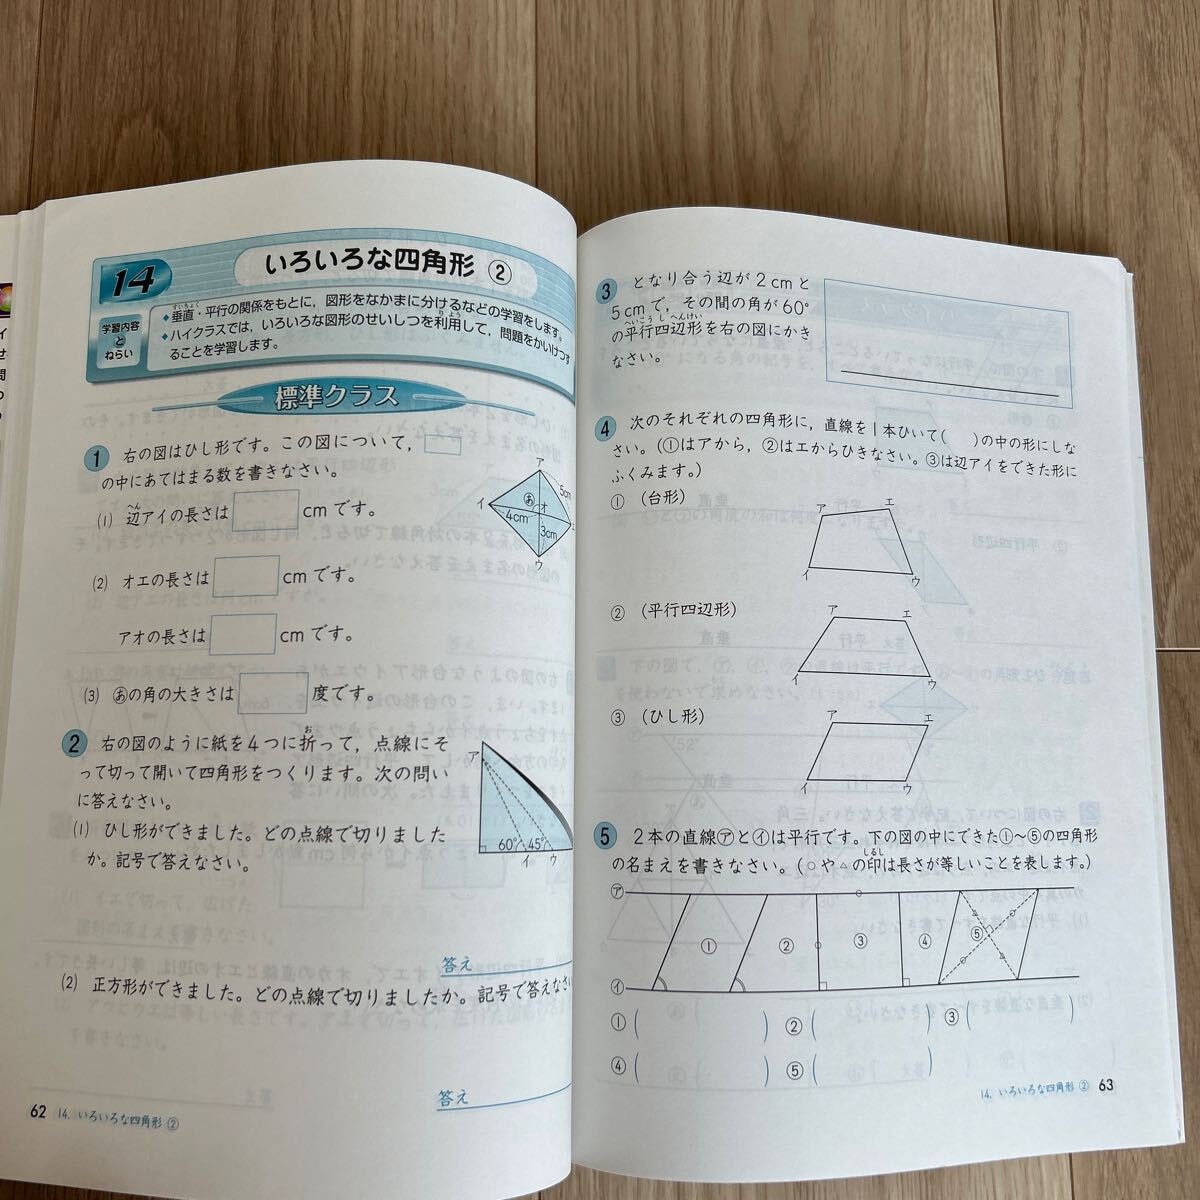 14
いろいろな四角形 ②
学習内容
と
ねらい
◆垂直・平行の関係をもとに，図形をなかまに分けるなどの学習をします。
◆ハイクラスでは，いろいろな図形のせいしつを利用して，問題をかいけつす
ることを学習します。
標準クラス
1 右の図はひし形です。この図について，□
の中にあてはまる数を書きなさい。
(1) 辺アイの長さは□cmです。
(2) オエの長さは□cmです。
アオの長さは□cmです。
(3) あの角の大きさは□度です。
ア
イ
あ
オ
5cm
4cm
3cm
ウ
2 右の図のように紙を4つに折って，点線にそ
って切って開いて四角形をつくります。次の問い
に答えなさい。
(1) ひし形ができました。どの点線で切りました
か。記号で答えなさい。
ア
60° 45°
イ ウ
答え
(2) 正方形ができました。どの点線で切りましたか。記号で答えなさい
答え
62 14. いろいろな四角形 ②
3 となり合う辺が2cmと
5cmで，その間の角が60°
の平行四辺形を右の図にかき
なさい。
4 次のそれぞれの四角形に，直線を1本ひいて( )の中の形にしな
さい。(①はアから，②はエからひきなさい。③は辺アイをできた形に
ふくみます。)
① (台形)
ア エ
イ ウ
② (平行四辺形)
ア エ
イ ウ
③ (ひし形)
ア エ
イ ウ
5 2本の直線㋐と㋑は平行です。下の図の中にできた①～⑤の四角形
の名まえを書きなさい。(○や△の印は長さが等しいことを表します。)
㋐
① ② ③ ④ ⑤
㋑
①( ) ②( ) ③( )
④( ) ⑤( )
14. いろいろな四角形 ② 63